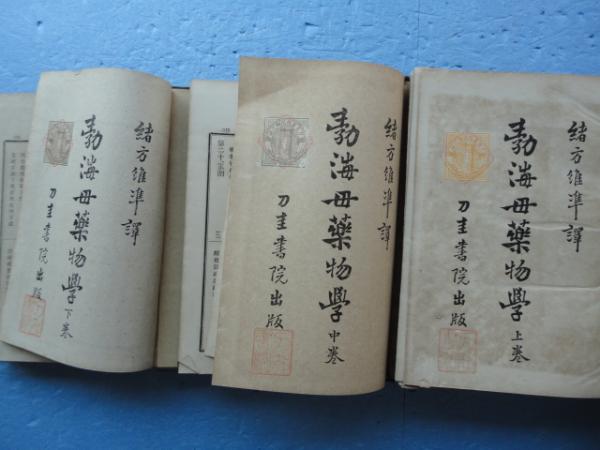 緒方維準譯
勃海毋藥物學上卷
刀圭書院出版
緒方維準譯
勃海毋藥物學中卷
刀圭書院出版
緒方維準譯
勃海毋藥物學下卷
刀圭書院出版